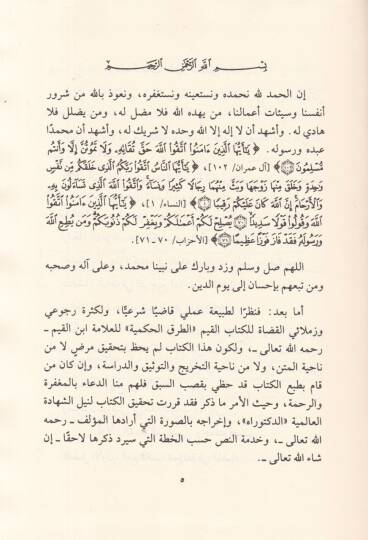 بسم الله الرحمن الرحيم
إن الحمد لله نحمده ونستعينه ونستغفره، ونعوذ بالله من شرور
أنفسنا وسيئات أعمالنا، من يهده الله فلا مضل له، ومن يضلل فلا
هادي له. وأشهد أن لا إله إلا الله وحده لا شريك له، وأشهد أن محمدًا
عبده ورسوله. ﴿يَٰٓأَيُّهَا ٱلَّذِينَ ءَامَنُوا۟ ٱتَّقُوا۟ ٱللَّهَ حَقَّ تُقَاتِهِۦ وَلَا تَمُوتُنَّ إِلَّا وَأَنتُم
مُّسْلِمُونَ ﴿١٠٢﴾﴾ [آل عمران/ ١٠٢]، ﴿يَٰٓأَيُّهَا ٱلنَّاسُ ٱتَّقُوا۟ رَبَّكُمُ ٱلَّذِى خَلَقَكُم مِّن نَّفْسٍ
وَٰحِدَةٍ وَخَلَقَ مِنْهَا زَوْجَهَا وَبَثَّ مِنْهُمَا رِجَالًا كَثِيرًا وَنِسَآءً وَٱتَّقُوا۟ ٱللَّهَ ٱلَّذِى تَسَآءَلُونَ بِهِۦ
وَٱلْأَرْحَامَ إِنَّ ٱللَّهَ كَانَ عَلَيْكُمْ رَقِيبًا ﴿١﴾﴾ [النساء/ ١]، ﴿يَٰٓأَيُّهَا ٱلَّذِينَ ءَامَنُوا۟ ٱتَّقُوا۟
ٱللَّهَ وَقُولُوا۟ قَوْلًا سَدِيدًا ﴿٧٠﴾ يُصْلِحْ لَكُمْ أَعْمَٰلَكُمْ وَيَغْفِرْ لَكُمْ ذُنُوبَكُمْ وَمَن يُطِعِ ٱللَّهَ
وَرَسُولَهُۥ فَقَدْ فَازَ فَوْزًا عَظِيمًا ﴿٧١﴾﴾ [الأحزاب/ ٧٠ ـ ٧١].
اللهم صل وسلم وزد وبارك على نبينا محمد، وعلى آله وصحبه
ومن تبعهم بإحسان إلى يوم الدين.
أما بعد: فنظرًا لطبيعة عملي قاضيًا شرعيًّا، ولكثرة رجوعي
وزملائي القضاة للكتاب القيم «الطرق الحكمية» للعلامة ابن القيم ـ
رحمه الله تعالى ـ، ولكون هذا الكتاب لم يحظ بتحقيق مرضٍ لا من
ناحية المتن، ولا من ناحية التخريج والتوثيق والدراسة، وإن كان من
قام بطبع الكتاب قد حظي بقصب السبق فلهم منا الدعاء بالمغفرة
والرحمة، وحيث الأمر ما ذكر فقد قررت تحقيق الكتاب لنيل الشهادة
العالمية «الدكتوراه»، وإخراجه بالصورة التي أرادها المؤلف ـ رحمه
الله تعالى ـ، وخدمة النص حسب الخطة التي سيرد ذكرها لاحقًا ـ إن
شاء الله تعالى ـ.
٥